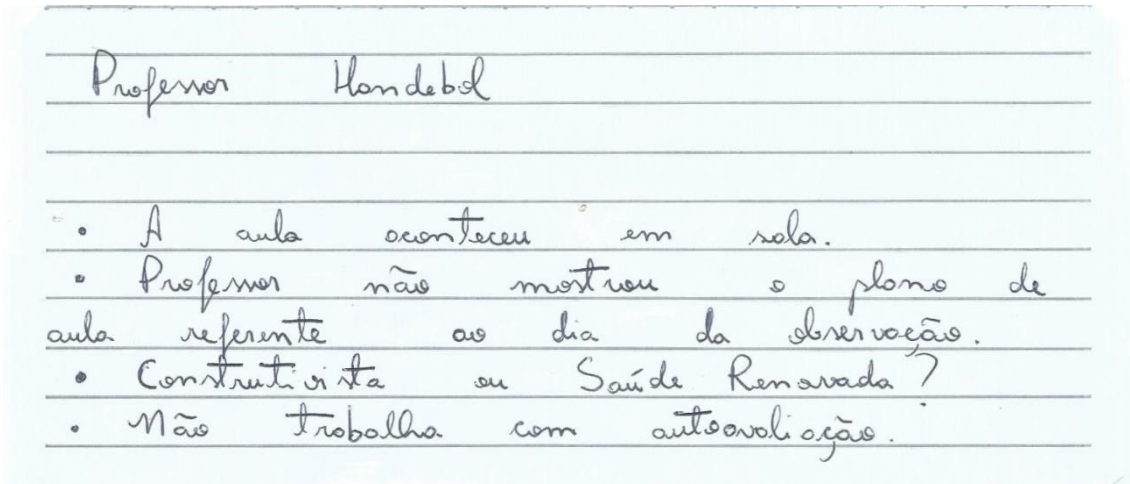 Professor Handebol
• A aula aconteceu em sala.
• Professor não mostrou o plano de
aula referente ao dia da observação.
• Construtivista ou Saúde Renovada?
• Não trabalha com autoavaliação.